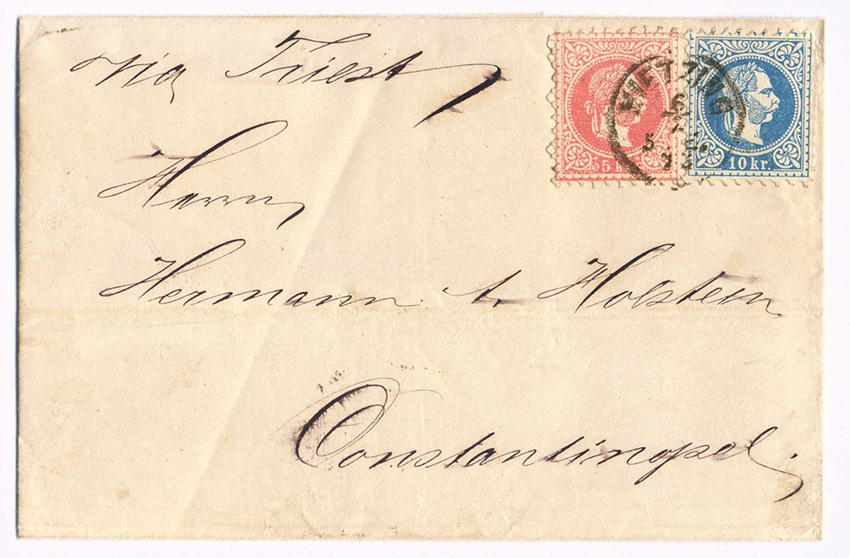 via Triest
5 kr.
10 kr.
HIETZING
Herrn
Hermann A. Holstein
Constantinopel.